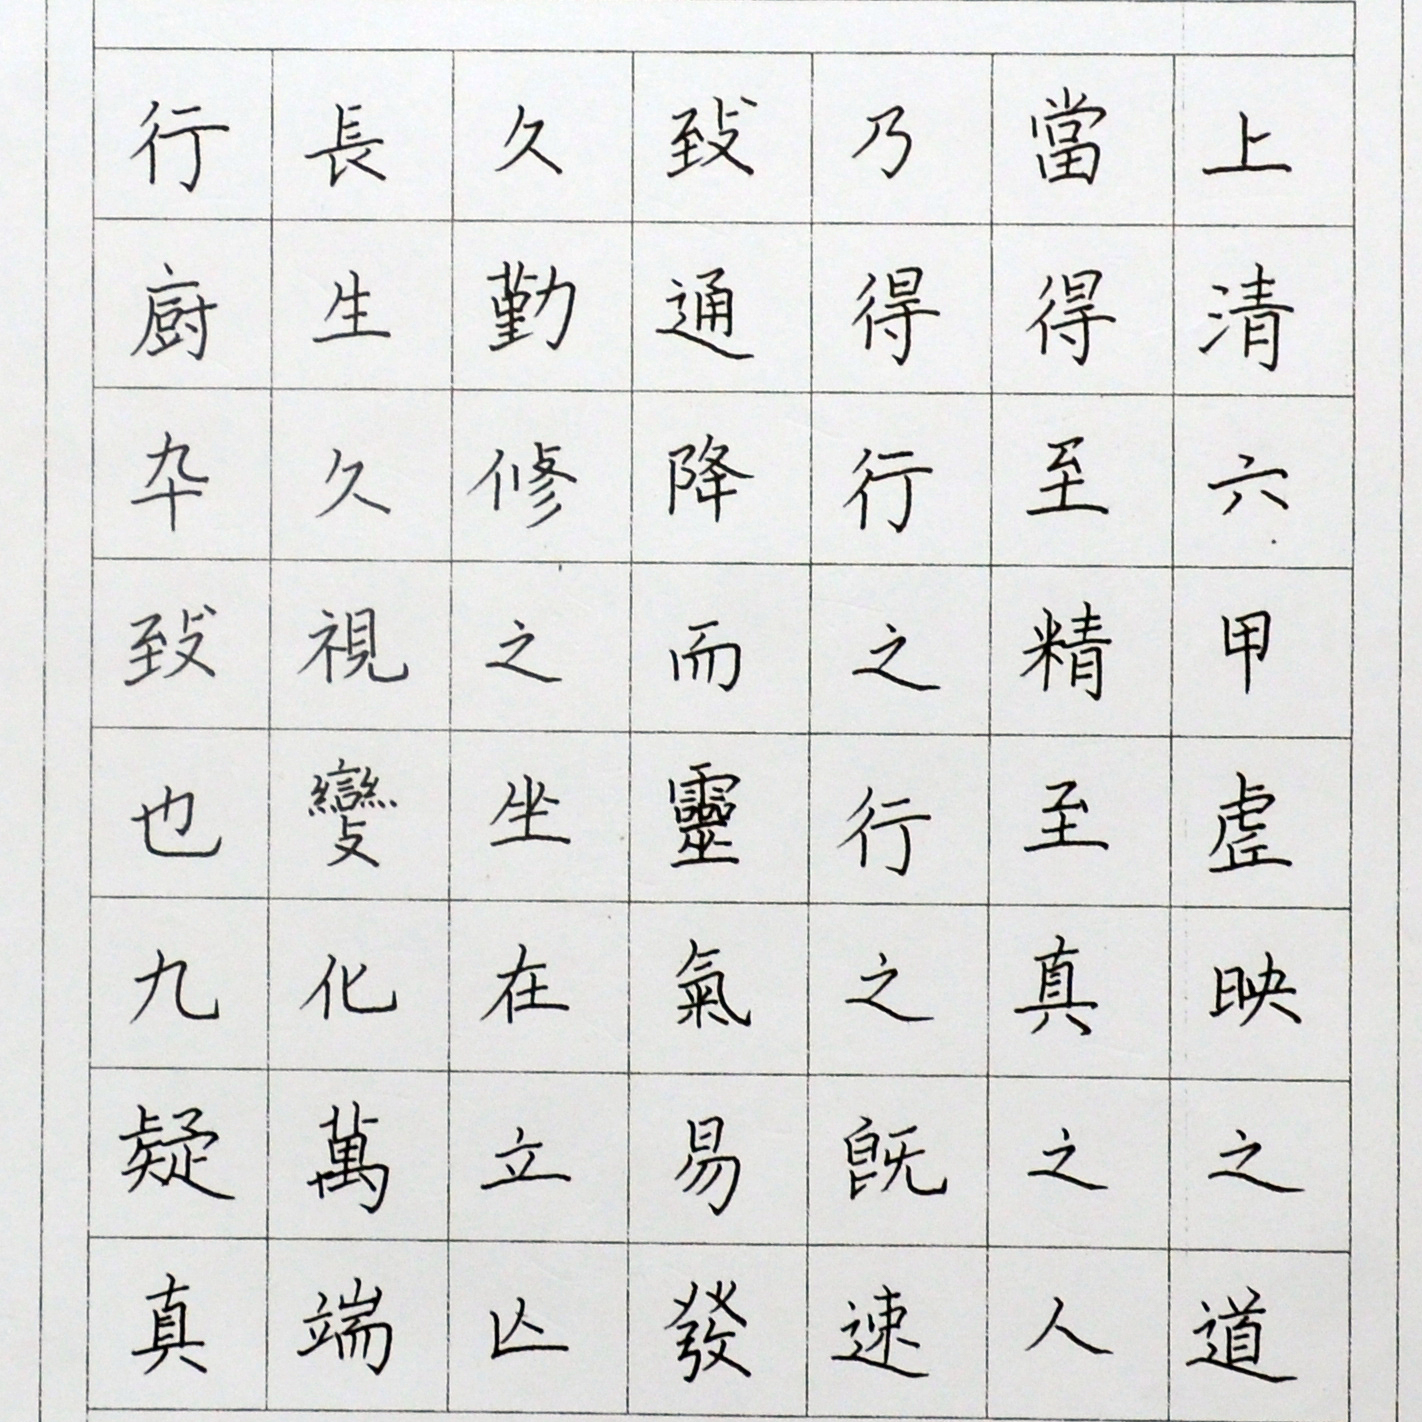 上清六甲虗映之道
當得至精至真之人
乃得行之行之既速
致通降而靈氣易發
久勤修之坐在立亾
長生久視變化萬端
行廚卒致也九疑真